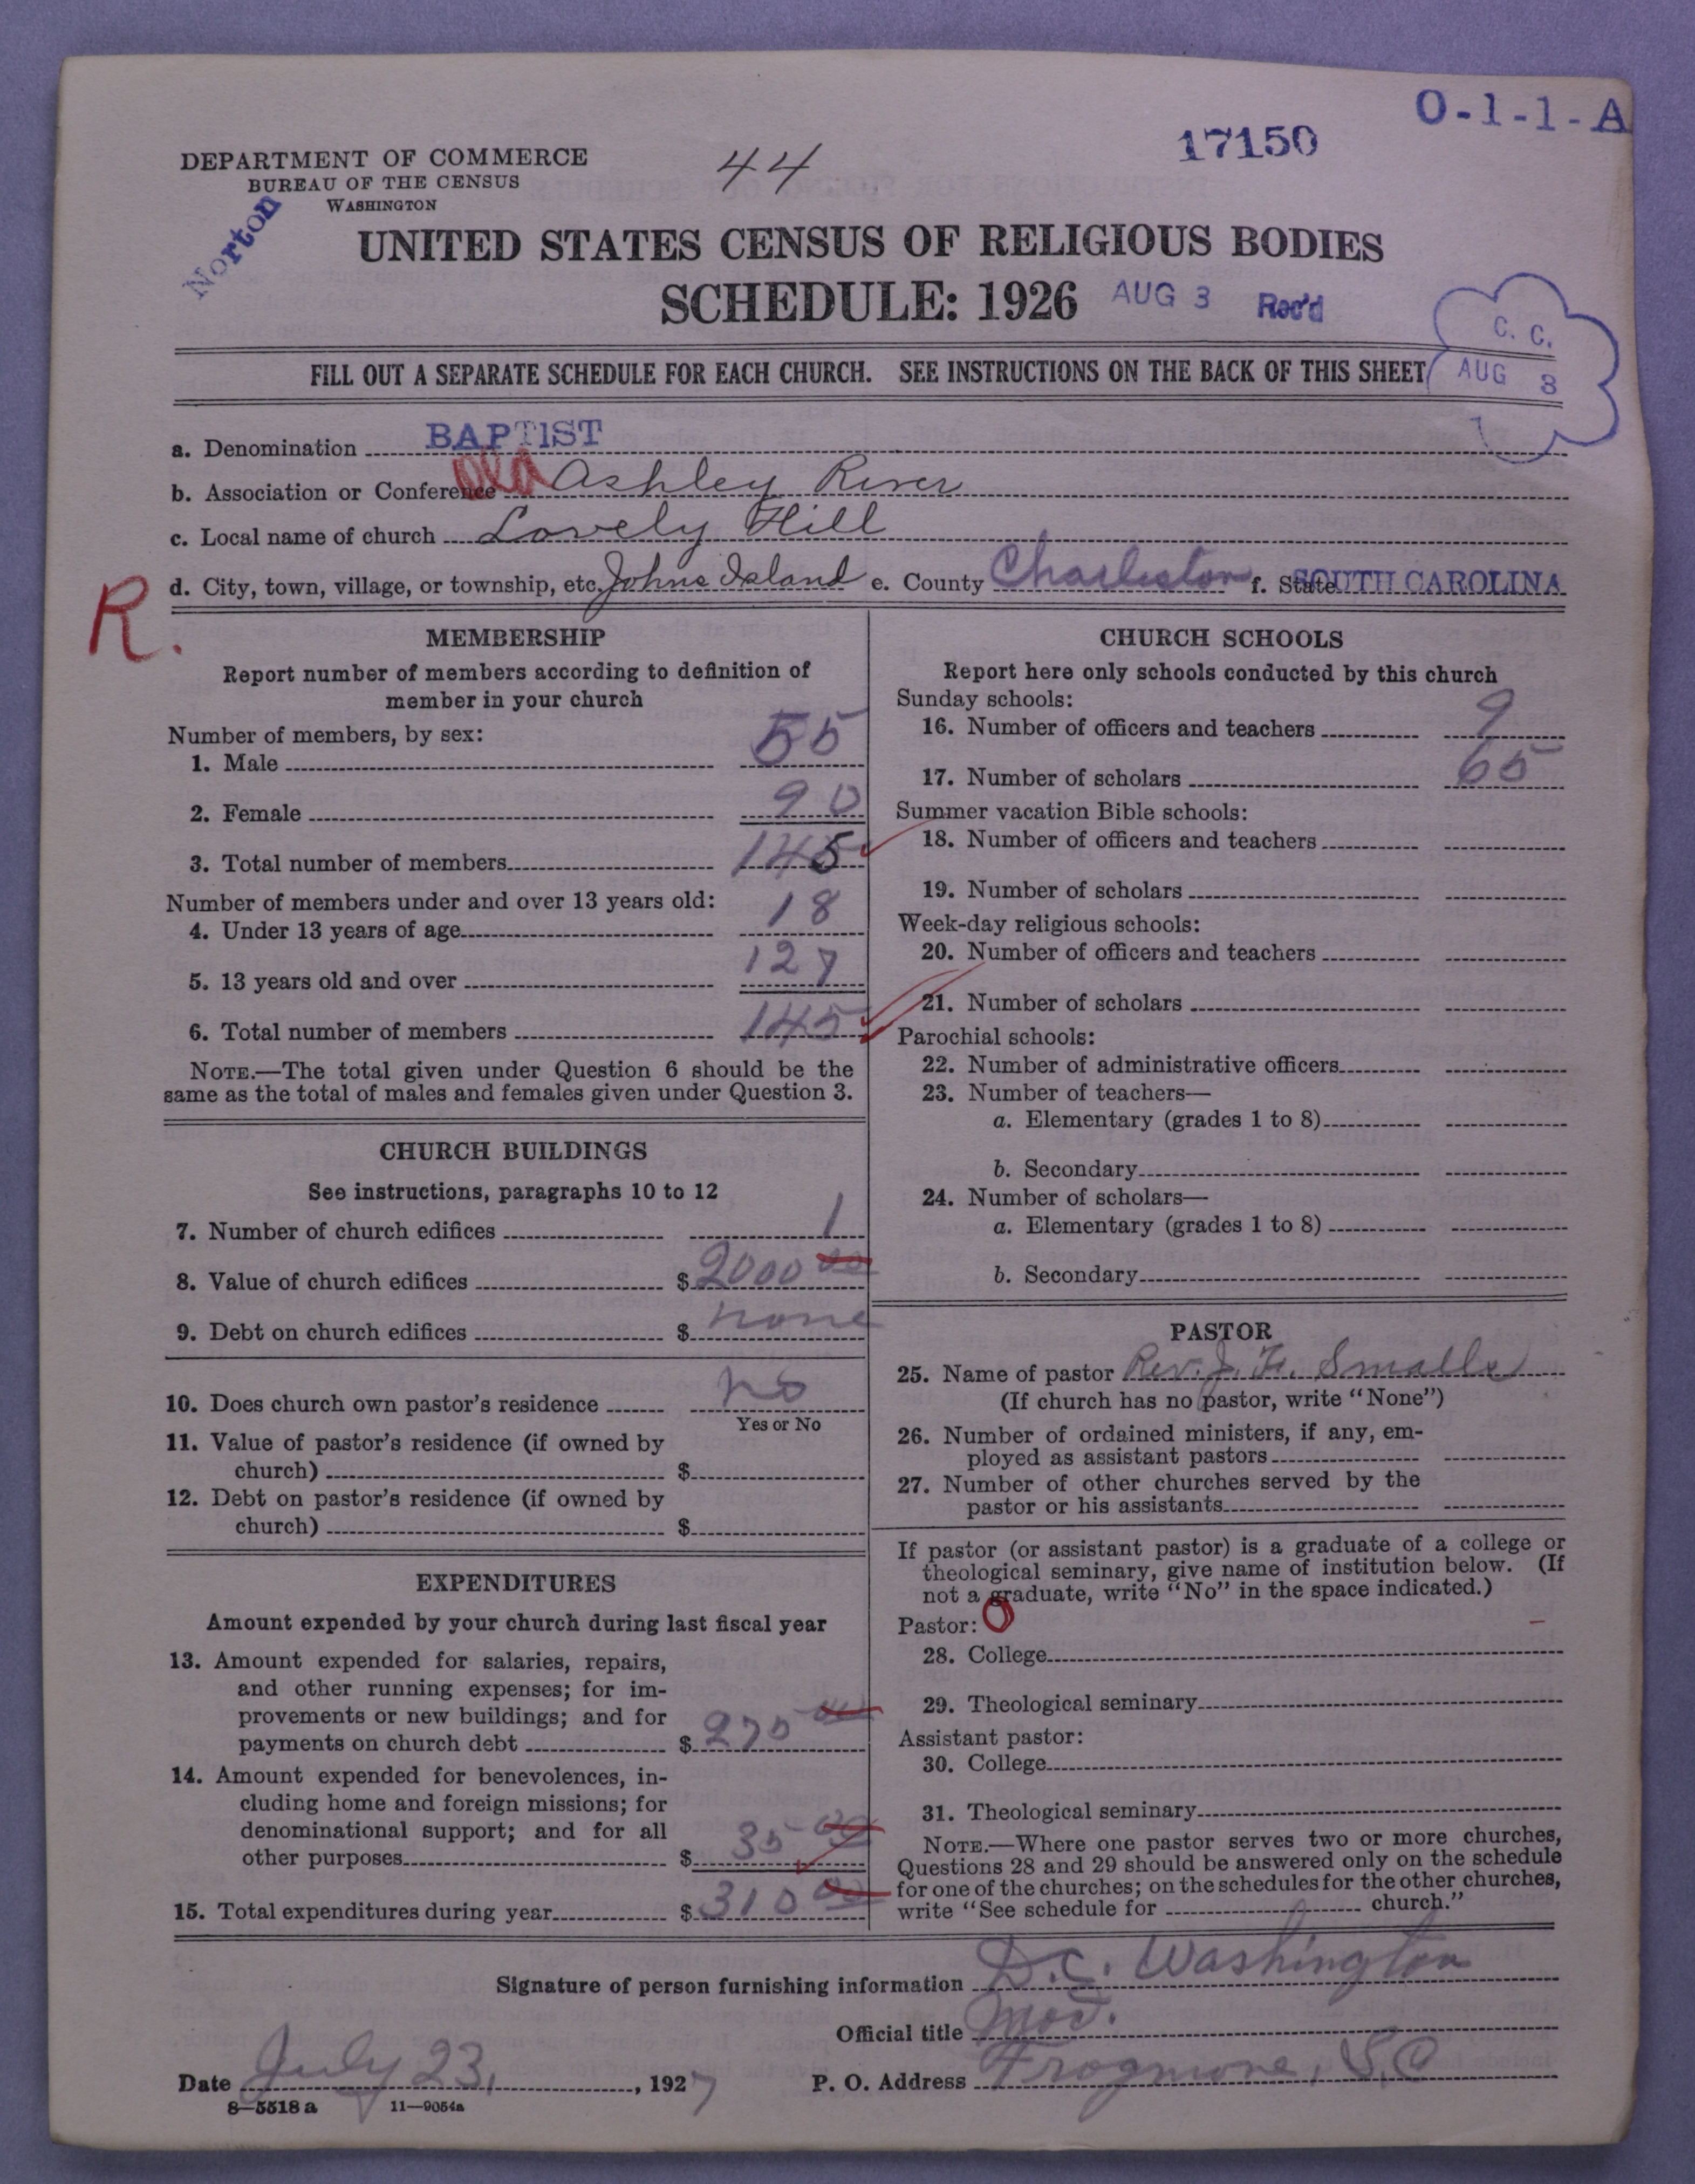 O-1-1-A
17150
44
DEPARTMENT OF COMMERCE
BUREAU OF THE CENSUS
WASHINGTON
Norton
UNITED STATES CENSUS OF RELIGIOUS BODIES
SCHEDULE: 1926 AUG 3 Rec'd
C. C.
AUG 8
FILL OUT A SEPARATE SCHEDULE FOR EACH CHURCH. SEE INSTRUCTIONS ON THE BACK OF THIS SHEET
a. Denomination BAPTIST
b. Association or Conference Old Ashley River
c. Local name of church Lovely Hill
d. City, town, village, or township, etc. Johns Island e. County Charleston f. State SOUTH CAROLINA
R.
MEMBERSHIP
Report number of members according to definition of
member in your church
Number of members, by sex:
1. Male 55
2. Female 90
3. Total number of members 145
Number of members under and over 13 years old:
4. Under 13 years of age 18
5. 13 years old and over 127
6. Total number of members 145
NOTE.—The total given under Question 6 should be the
same as the total of males and females given under Question 3.
CHURCH BUILDINGS
See instructions, paragraphs 10 to 12
7. Number of church edifices 1
8. Value of church edifices $ 2000 00
9. Debt on church edifices $ none
10. Does church own pastor's residence no
Yes or No
11. Value of pastor's residence (if owned by
church) $
12. Debt on pastor's residence (if owned by
church) $
EXPENDITURES
Amount expended by your church during last fiscal year
13. Amount expended for salaries, repairs,
and other running expenses; for im-
provements or new buildings; and for
payments on church debt $ 275 00
14. Amount expended for benevolences, in-
cluding home and foreign missions; for
denominational support; and for all
other purposes $ 35 00
15. Total expenditures during year $ 310 00
CHURCH SCHOOLS
Report here only schools conducted by this church
Sunday schools:
16. Number of officers and teachers 9
17. Number of scholars 65
Summer vacation Bible schools:
18. Number of officers and teachers
19. Number of scholars
Week-day religious schools:
20. Number of officers and teachers
21. Number of scholars
Parochial schools:
22. Number of administrative officers
23. Number of teachers—
a. Elementary (grades 1 to 8)
b. Secondary
24. Number of scholars—
a. Elementary (grades 1 to 8)
b. Secondary
PASTOR
25. Name of pastor Rev. J. H. Smalls
(If church has no pastor, write "None")
26. Number of ordained ministers, if any, em-
ployed as assistant pastors
27. Number of other churches served by the
pastor or his assistants
If pastor (or assistant pastor) is a graduate of a college or
theological seminary, give name of institution below. (If
not a graduate, write "No" in the space indicated.)
Pastor: O
28. College
29. Theological seminary
Assistant pastor:
30. College
31. Theological seminary
NOTE.—Where one pastor serves two or more churches,
Questions 28 and 29 should be answered only on the schedule
for one of the churches; on the schedules for the other churches,
write "See schedule for church."
Signature of person furnishing information D.C. Washington
Official title Mod.
Date July 23, 1927 P. O. Address Frogmore, S.C
8—5518 a 11—9054a